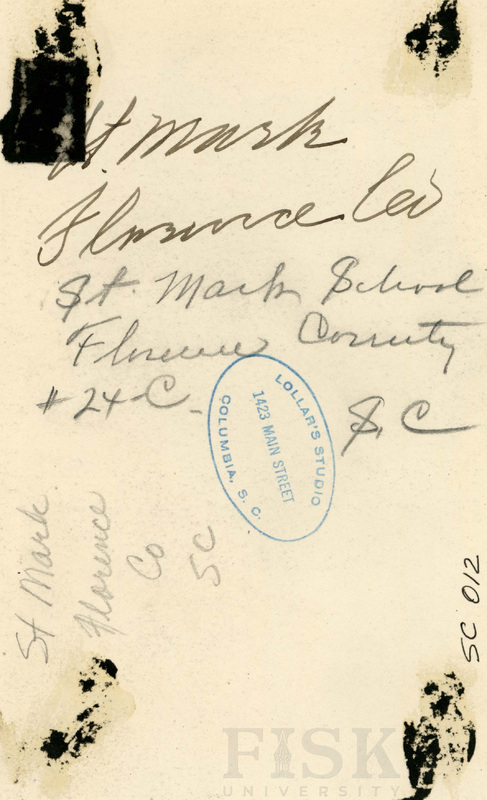 St. Mark
Florence Co
St. Mark School
Florence County
# 24-C
S, C
LOLLAR'S STUDIO
1423 MAIN STREET
COLUMBIA, S. C.
St Mark
Florence
Co
SC
SC 012
FISK
UNIVERSITY